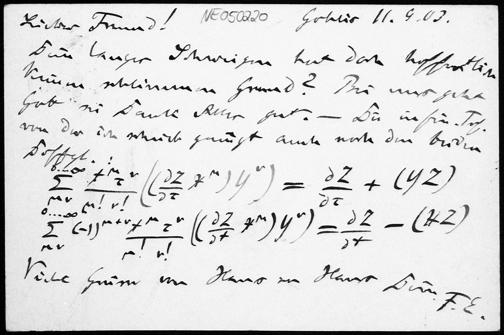 NE050220
Lieber Freund! Gohlis 11.9.03.
Dein langes Schweigen hat doch hoffentlich
keinen schlimmen Grund? Bei uns geht
Gott sei Dank Alles gut. — Die infin. Trf.
von der ich schrieb genügt auch noch den beiden
0....∞
∑ μν t^μ τ^ν / μ! ν! ((∂Z/∂τ X^μ) Y^ν) = ∂Z/∂τ + (YZ)
0....∞
∑ μν (-1)^{μ+ν} t^μ τ^ν / μ! ν! ((∂Z/∂t X^μ) Y^ν) = ∂Z/∂t - (XZ)
Viele Grüsse von Haus zu Haus Dein
F. E.